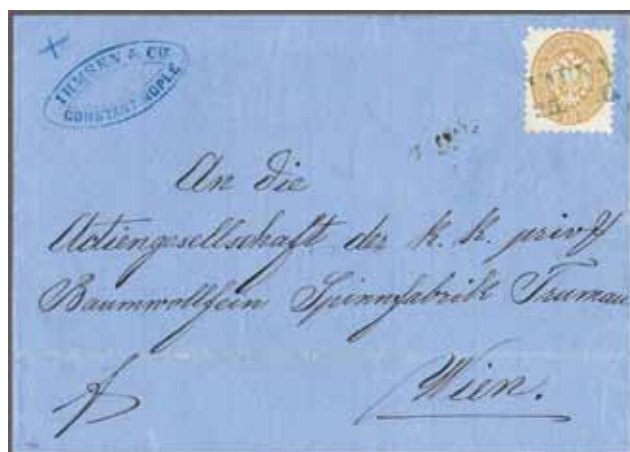 IHMSEN & Co.
CONSTANTINOPLE
An die
Actiengesellschaft der k. k. priv
Baumwollfein Spinnfabrik Trumau
Wien.